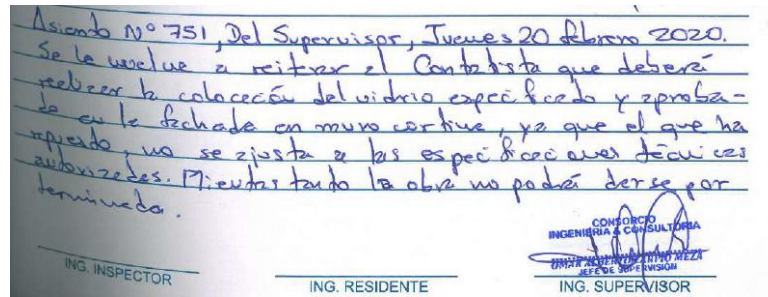 Asiento Nº 751, Del Supervisor, Jueves 20 febrero 2020.
Se le vuelve a reiterar al Contratista que deberá
realizar la colocación del vidrio especificado y aproba-
do en la fachada en muro cortina, ya que el que ha
repuesto, no se ajusta a las especificaciones técnicas
autorizadas. Mientras tanto la obra no podrá darse por
terminada.
CONSORCIO
INGENIERIA & CONSULTORIA
OMAR ALBERTO MEZA
JEFE DE SUPERVISIÓN
ING. INSPECTOR
ING. RESIDENTE
ING. SUPERVISOR